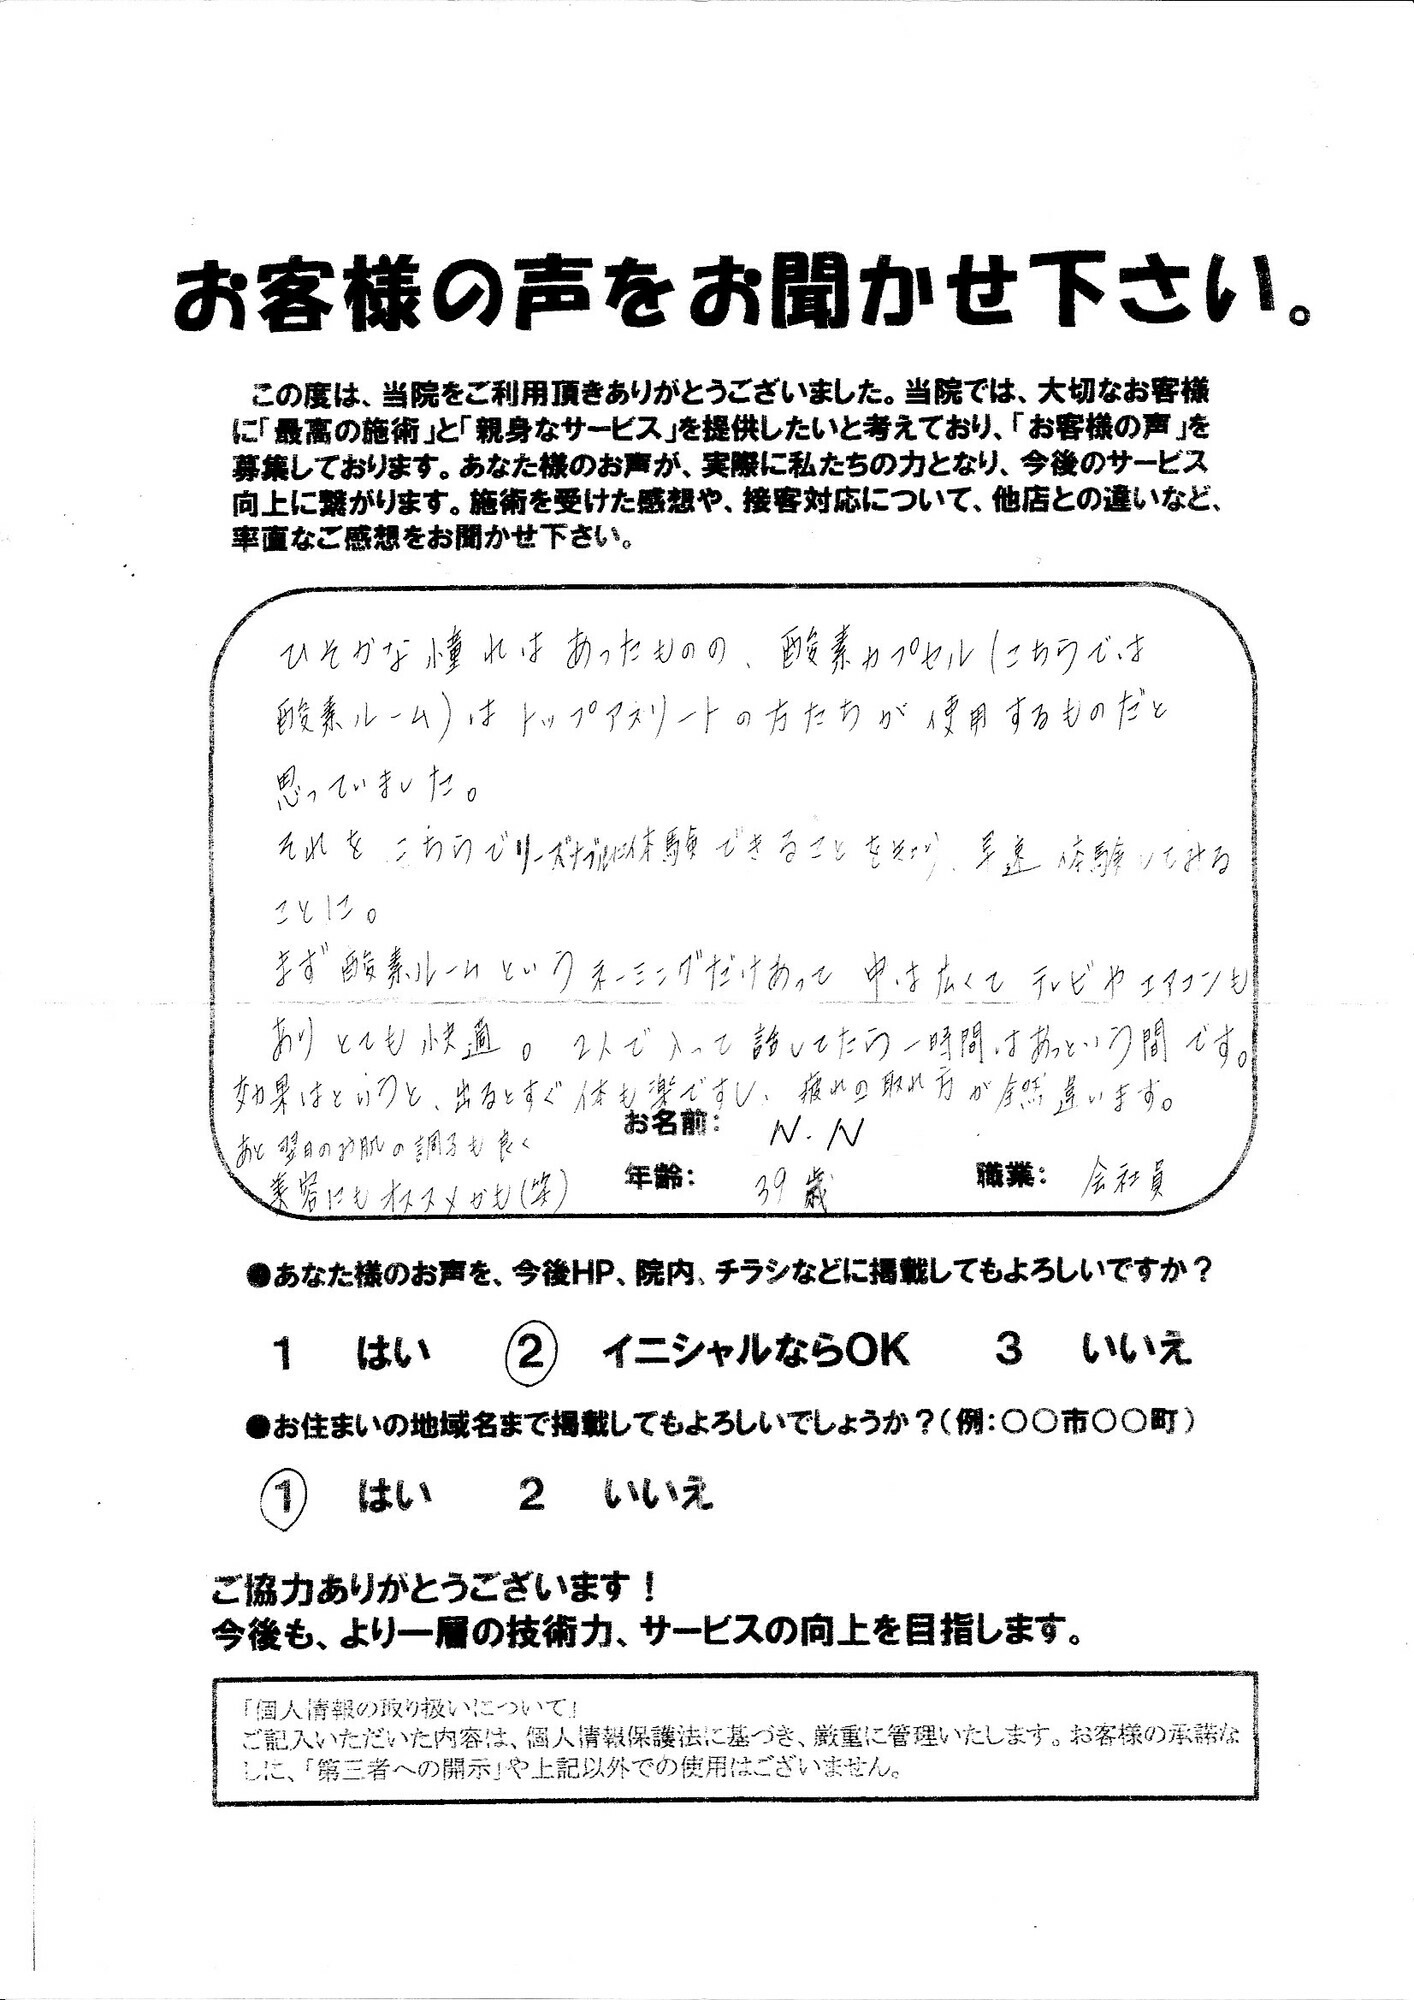 お客様の声をお聞かせ下さい。
この度は、当院をご利用頂きありがとうございました。当院では、大切なお客様
に「最高の施術」と「親身なサービス」を提供したいと考えており、「お客様の声」を
募集しております。あなた様のお声が、実際に私たちの力となり、今後のサービス
向上に繋がります。施術を受けた感想や、接客対応について、他店との違いなど、
率直なご感想をお聞かせ下さい。
ひそかな憧れはあったものの、酸素カプセル(こちらでは
酸素ルーム)はトップアスリートの方たちが使用するものだと
思っていました。
それをこちらでリーズナブルに体験できることを知り、早速体験してみる
ことに。
まず酸素ルームというネーミングだけあって中は広くてテレビやエアコンも
ありとても快適。2人で入って話してたら一時間はあっという間です。
効果はというと、出るとすぐ体も楽ですし、疲れの取れ方が全然違います。
あと翌日のお肌の調子も良く
美容にもオススメかも(笑)
お名前: N.N
年齢: 39歳 職業: 会社員
●あなた様のお声を、今後HP、院内、チラシなどに掲載してもよろしいですか?
1 はい 2 イニシャルならOK 3 いいえ
●お住まいの地域名まで掲載してもよろしいでしょうか?(例:○○市○○町)
1 はい 2 いいえ
ご協力ありがとうございます!
今後も、より一層の技術力、サービスの向上を目指します。
「個人情報の取り扱いについて」
ご記入いただいた内容は、個人情報保護法に基づき、厳重に管理いたします。お客様の承諾な
しに、「第三者への開示」や上記以外での使用はございません。